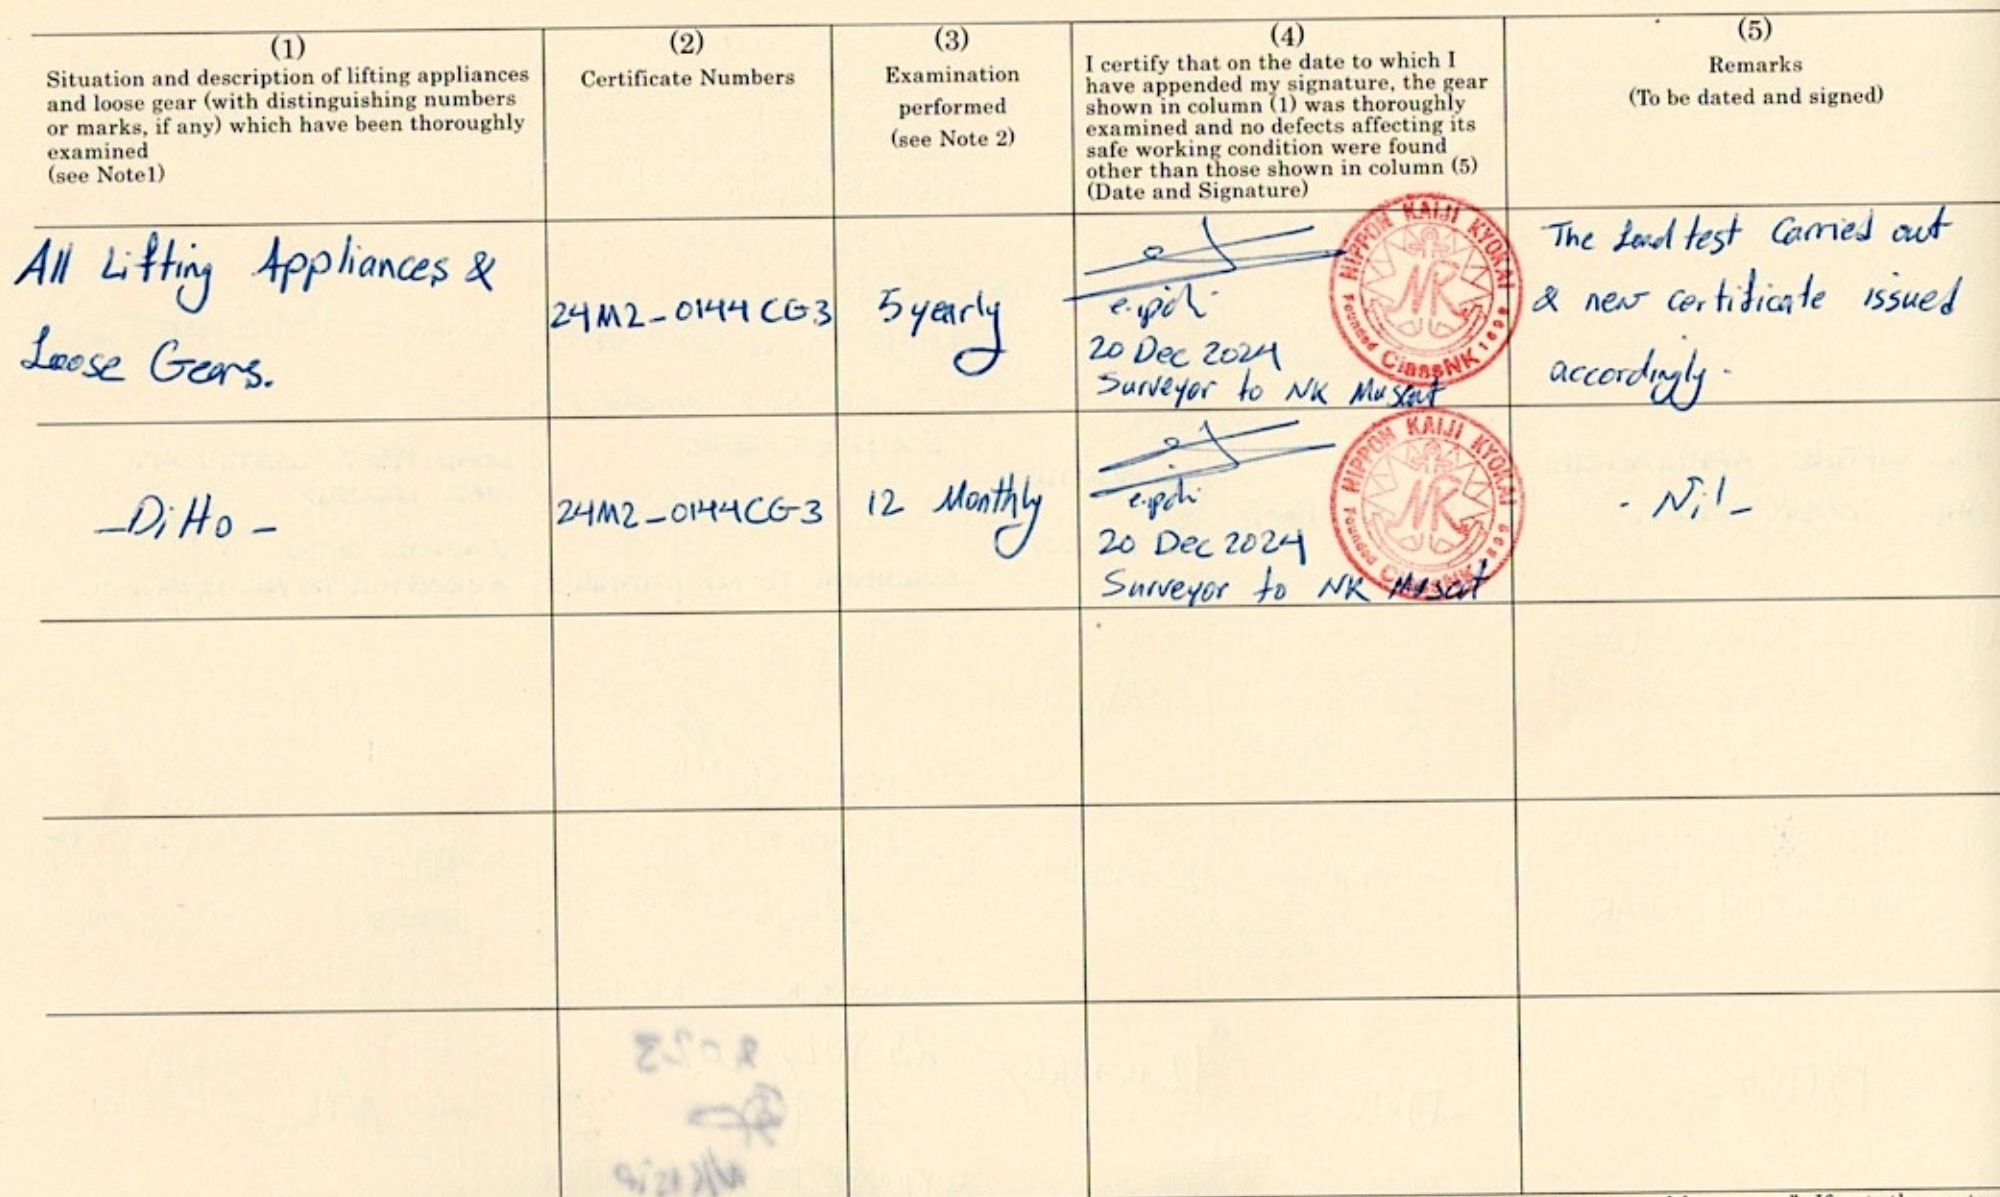 (1)
Situation and description of lifting appliances
and loose gear (with distinguishing numbers
or marks, if any) which have been thoroughly
examined
(see Note1)
(2)
Certificate Numbers
(3)
Examination
performed
(see Note 2)
(4)
I certify that on the date to which I
have appended my signature, the gear
shown in column (1) was thoroughly
examined and no defects affecting its
safe working condition were found
other than those shown in column (5)
(Date and Signature)
(5)
Remarks
(To be dated and signed)
All Lifting Appliances &
Loose Gears.
24M2-0144CG3
5 yearly
20 Dec 2024
Surveyor to NK Muscat
NIPPON KAIJI KYOKAI
NK
Founded 1899
ClassNK
The Load test Carried out
& new certificate issued
accordingly.
- Ditto -
24M2-0144CG3
12 Monthly
20 Dec 2024
Surveyor to NK Muscat
NIPPON KAIJI KYOKAI
NK
Founded 1899
ClassNK
- Nil -